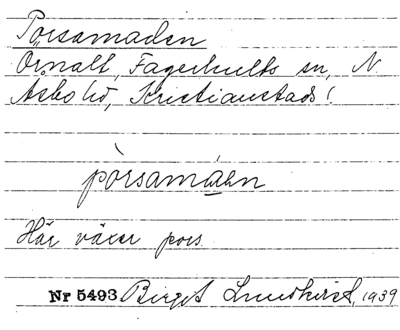 Porsamaden
Örnalt, Fagerhults sn, N.
Åsbo hd, Kristianstads l.
pòrsamáden
Här växer pors.
Nr 5493 Birgit Lundkvist, 1939